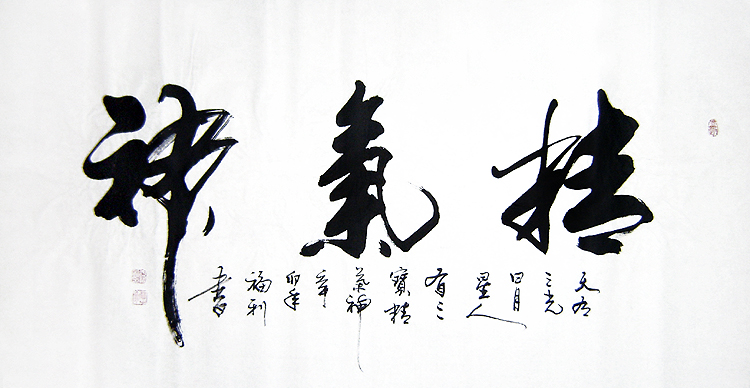 精氣神
天有
三光
日月
星人
有三
寶精
氣神
辛
卯年
福利
書